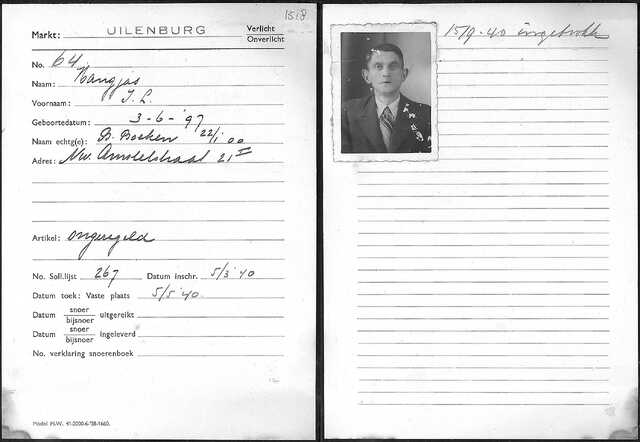 1518
Markt: UILENBURG Verlicht
Onverlicht
No. 64
Naam: Kangjas
Voornaam: I. L.
Geboortedatum: 3-6-'97
Naam echtg(e): B. Boeken 22/1 '00
Adres: Nw. Amstelstraat 21 II
Artikel: ongeregeld
No. Soll.lijst 267 Datum inschr. 5/3 '40
Datum toek: Vaste plaats 5/5 '40.
Datum snoer
bijsnoer uitgereikt
Datum snoer
bijsnoer ingeleverd
No. verklaring snoerenboek
Model M.W. 41-2000-6-'38-1660.
15/9-40 ingetrokken